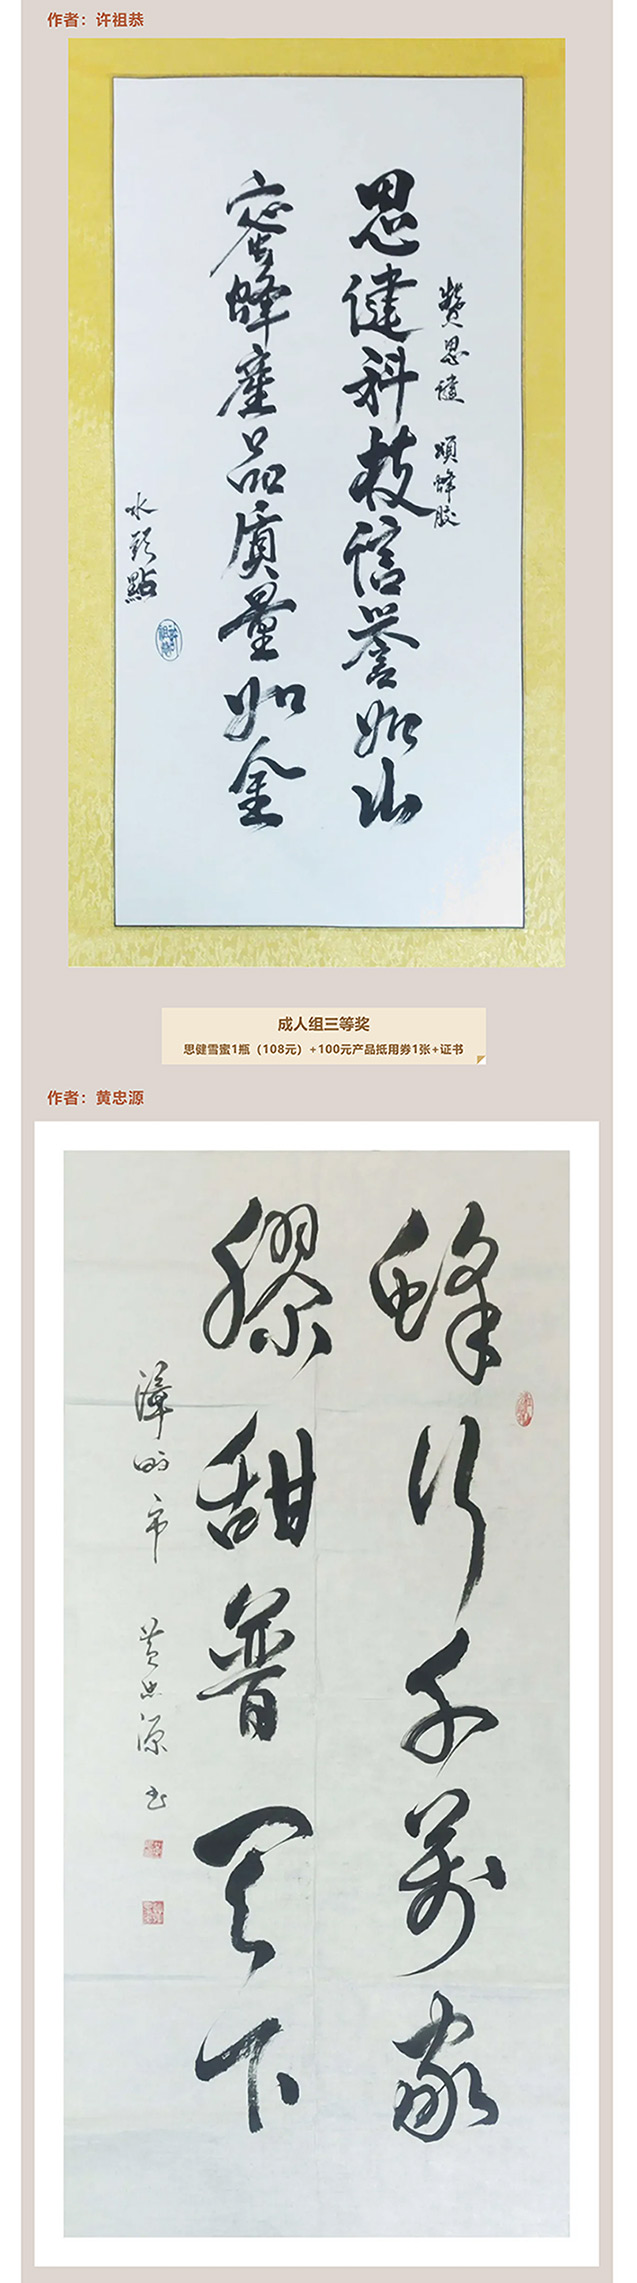 作者：许祖恭
赞思健 颂蜂胶
思健科技信誉如山
蜜蜂产品质量如金
成人组三等奖
思健雪蜜1瓶（108元）+100元产品抵用券1张+证书
作者：黄忠源
蜂行千万家
胶甜普天下
漳州市 黄忠源 书